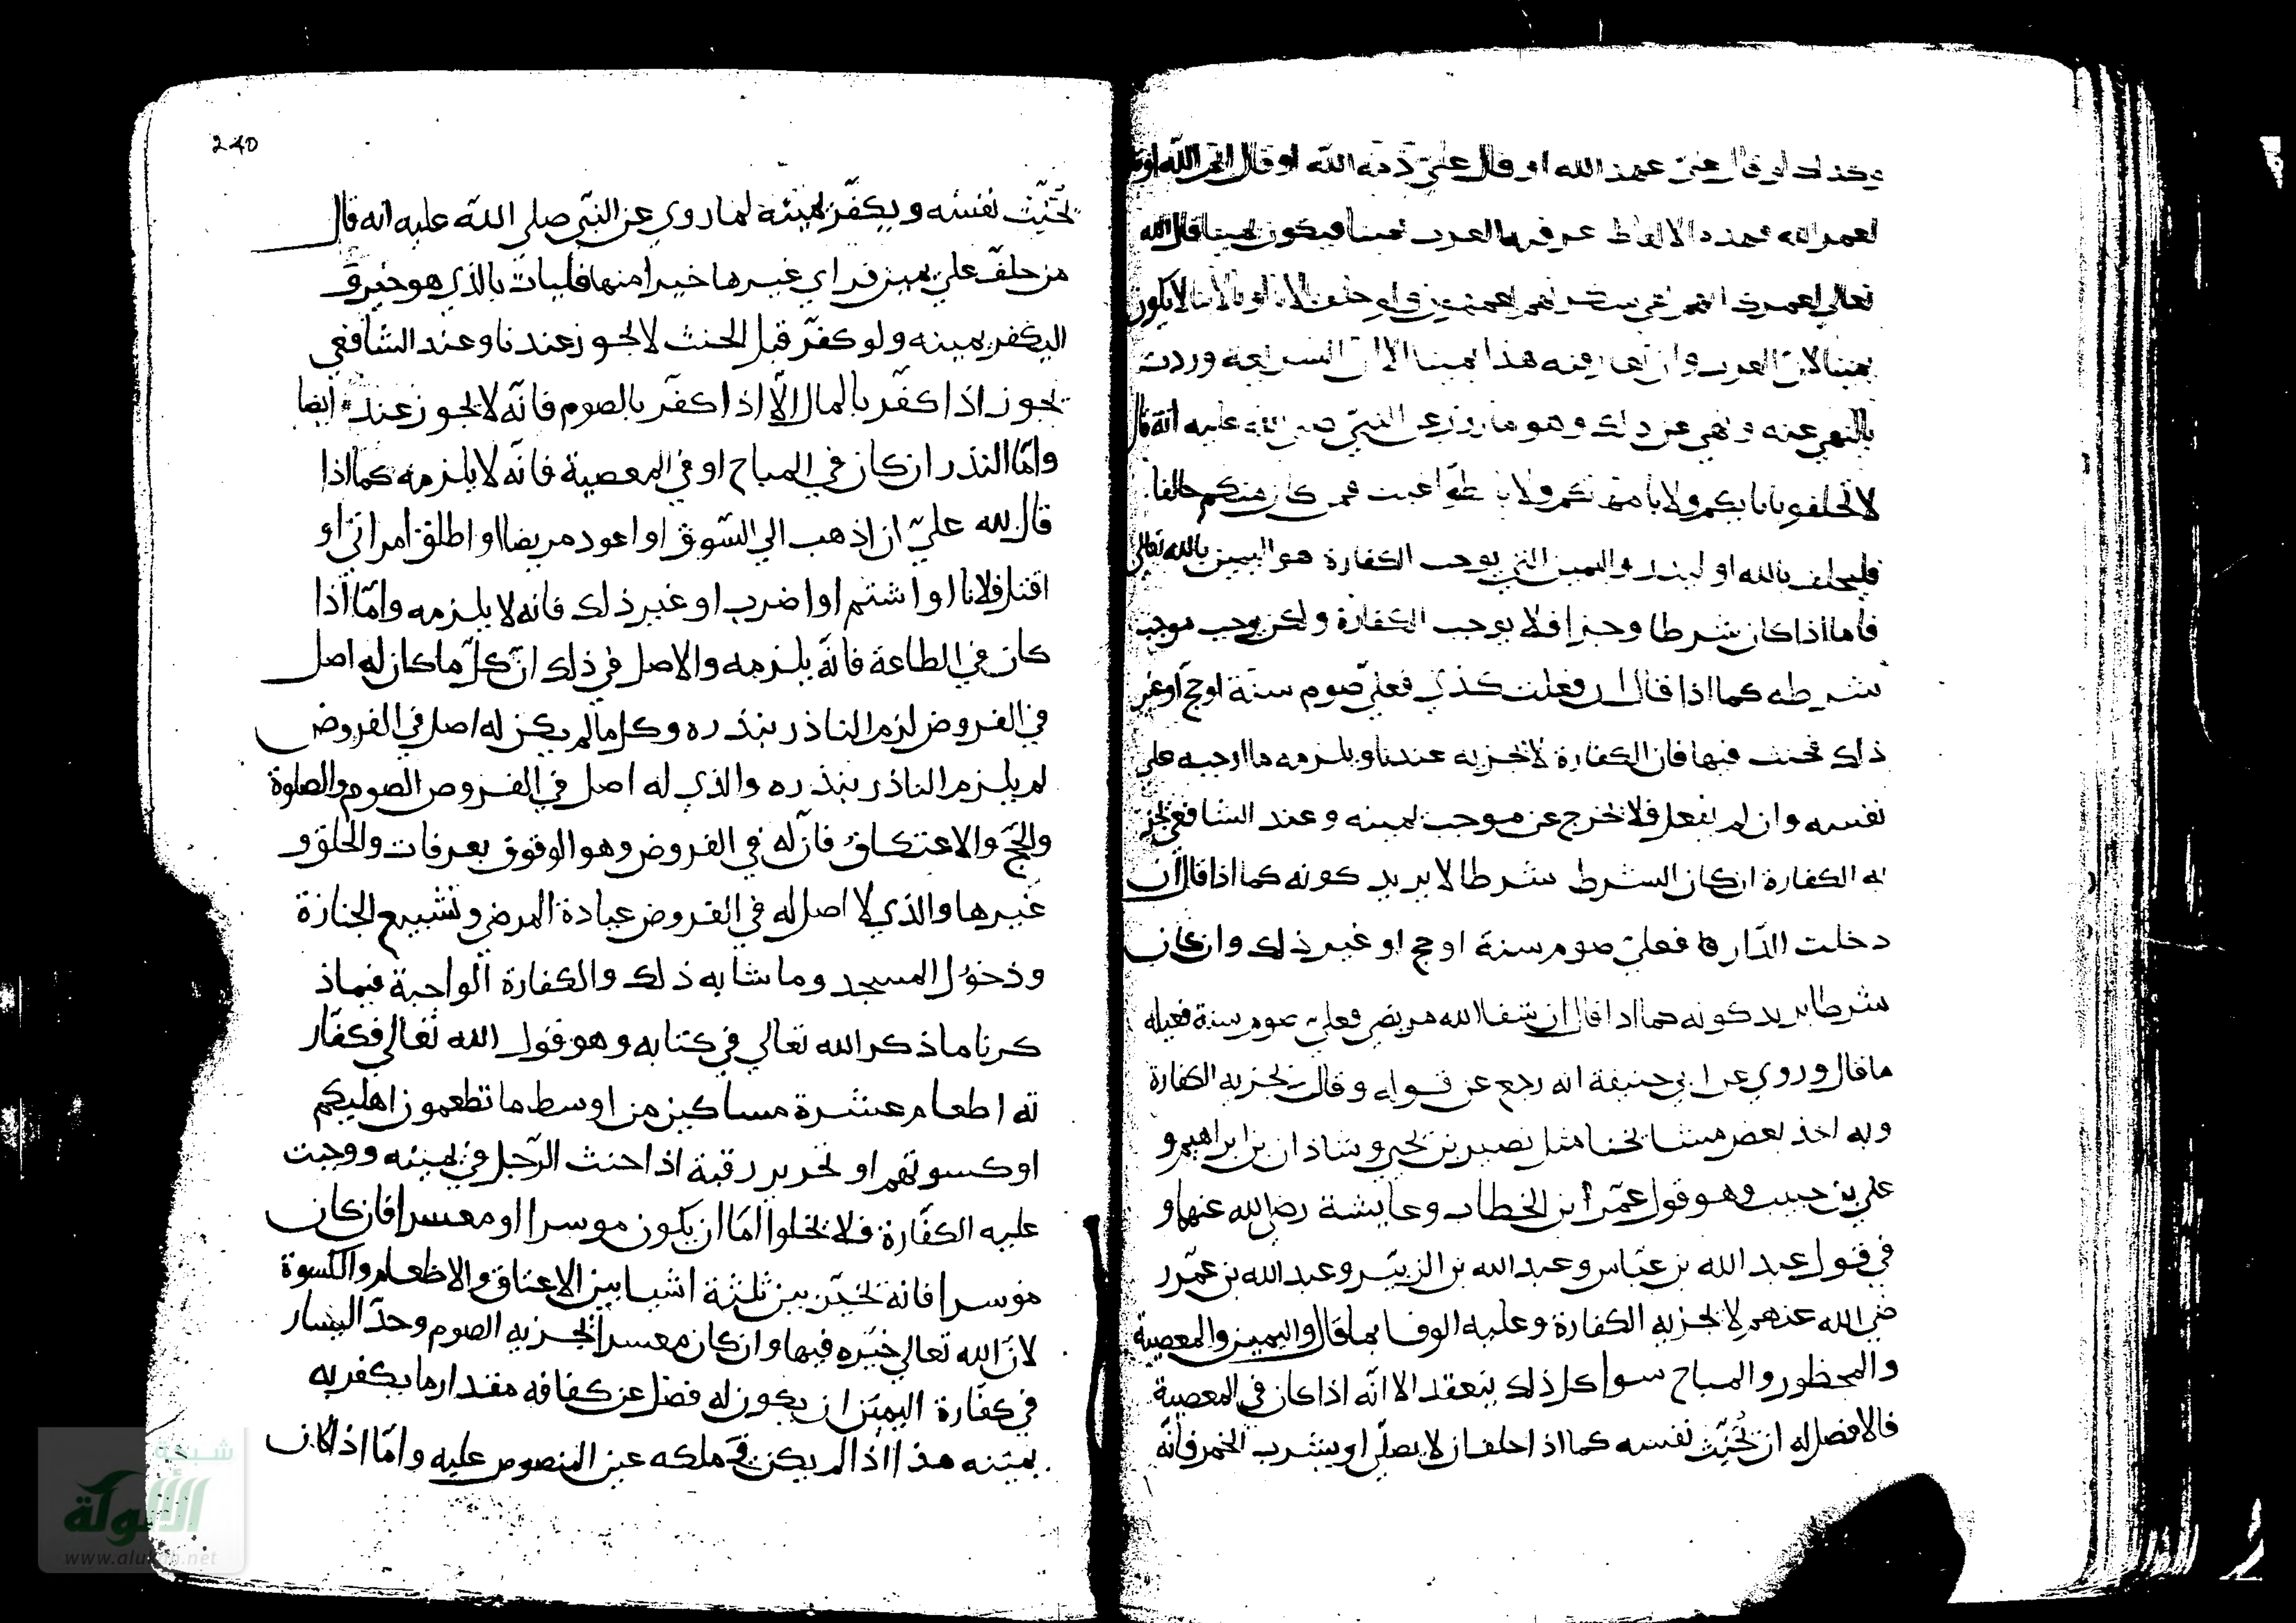 وكذلك لو قال عليّ عهد الله او قال عليّ ذمة الله او قال ايم الله او
لعمر الله فهذه الالفاظ عرفها العرب يمينا فيكون يمينا قال الله
تعالي لعمرك انهم لفي سكرتهم يعمهون ولو حلف بالاباو بالابنا لا يكون
يمينا لانّ العرب وان تعارفته هذا يمينا الا انّ الشريعة وردت
بالنهي عنه ونهي عن ذلك وهو ما روي عن النبيّ صلي الله عليه انّه قال
لا تحلفو بابايكم ولا بامهاتكم ولا بالطواغيت فمن كان منكم حالفا
فليحلف بالله او ليذر واليمين التي يوجب الكفارة هو اليمين بالله تعالي
فاما اذا كان شرطا وجزا فلا يوجب الكفارة ولكن يوجب موجب
شرطه كما اذا قال ان فعلت كذي فعليّ صوم سنة او حجّ او غير
ذلك فحنث فيها فان الكفارة لا تجزيه عندنا ويلزمه ما اوجبه علي
نفسه وان لم يفعل فلا يخرج عن موجب يمينه وعند الشافعي يجز
يه الكفارة ان كان الشرط شرطا لا يريد كونه كما اذا قال ان
دخلت الدّار فعليّ صوم سنة او حج او غير ذلك وان كان
شرطا يريد كونه كما اذا قال ان شفا الله مريضي فعليّ صوم سنة فعليه
ما قال وروي عن ابي حنيفة انه رجع عن قوله وقال يجزيه الكفارة
وبه اخذ بعض مشايخنا مثل نصير بن يحيي وشاذان بن ابراهيم و
علي بن حبيب وهو قول عمر ابن الخطاب وعايشة رضي الله عنهما و
في قول عبد الله بن عبّاس وعبد الله بن الزبيّر وعبد الله بن عمّر ر
ضي الله عنهم لا يجزيه الكفارة وعليه الوفا بما قال واليمين والمعصية
والمحظور والمباح سوا كل ذلك ينعقد الا انّه اذا كان في المعصية
فالافضل له ان يُحَنِّث نفسه كما اذا حلف ان لا يصلّي او يشرب الخمر فانّه
240
يُحَنِّث نفسه ويكفّر يمينه لما روي عن النبّي صلي اللّه عليه انه قال
من حلف علي يمين فراي غيرها خيرا منها فليات بالذي هو خير و
ليكفر يمينه ولو كفّر قبل الحنث لا يجوز عندنا وعند الشافعي
يجوز اذا كفّر بالمال الّا اذا كفّر بالصوم فانّه لا يجوز عنده ايضا
وامّا النذر ان كان في المباح او في المعصية فانّه لا يلزمه كما اذا
قال لله عليّ ان اذهب الي السّوق او اعود مريضا او اطلق امراتي او
اقتل فلانا او اشتم او اضرب او غير ذلك فانه لا يلزمه وامّا اذا
كان في الطاعة فانّه يلزمه والاصل في ذلك انّ كلّ ما كان له اصل
في الفروض لزم الناذر بنذره وكل ما لم يكن له اصل في الفروض
لم يلزم الناذر بنذره والذي له اصل في الفروض الصوم والصلوة
والحجّ والاعتكاف فانّ له في الفروض وهو الوقوف بعرفات والحلق و
غيرها والذي لا اصل له في الفروض عيادة المرضي وتشييع الجنازة
ودخول المسجد وما شابه ذلك والكفارة الواجبة فيما ذ
كرنا ما ذكر الله تعالي في كتابه وهو قول الله تعالي فكفّار
ته اطعام عشرة مساكين من اوسط ما تطعمون اهليكم
او كسوتهم او تحرير رقبة اذا حنث الرّجل في يمينه ووجبت
عليه الكفّارة فلا يخلوا امّا ان يكون موسرا او معسرا فان كان
موسرا فانه يخيّر بين ثلثة اشيا بين الاعتاق والاطعام والكسوة
لانّ الله تعالي خيّره فيها وان كان معسرا يجزيه الصوم وحدّ اليسار
في كفّارة اليمين ان يكون له فضل عن كفافه مقدار ما يكفر به
يمينه هذا اذا لم يكن في ملكه عين المنصوص عليه وامّا اذا كان
شبكة
الألوكة
www.alukah.net